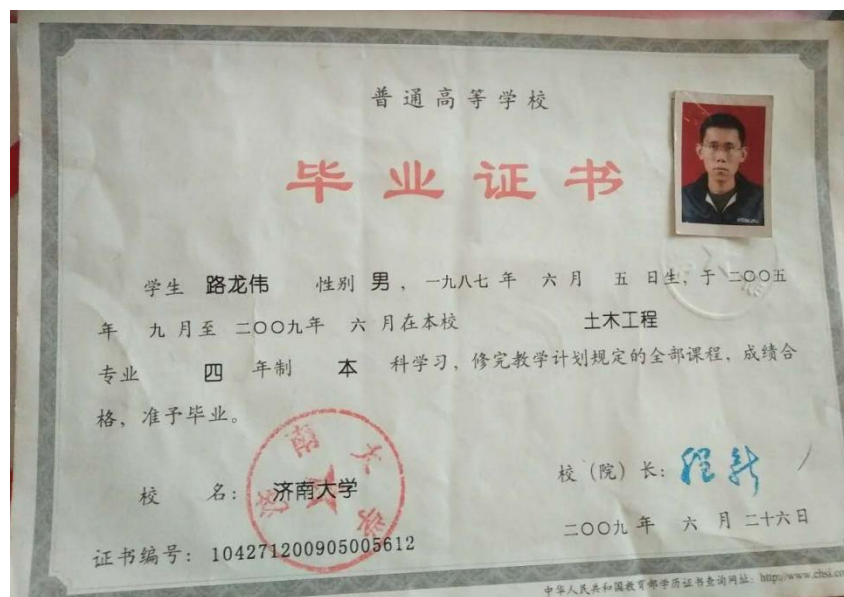 普通高等学校
毕业证书
学生 路龙伟 性别 男，一九八七 年 六 月 五 日生，于 二〇〇五
年 九 月至 二〇〇九年 六 月在本校 土木工程
专业 四 年制 本 科学习，修完教学计划规定的全部课程，成绩合
格，准予毕业。
校 名：济南大学
济南大学
校（院）长：程新
证书编号：104271200905005612
二〇〇九 年 六 月 二十六日
中华人民共和国教育部学历证书查询网址：http://www.chsi.co